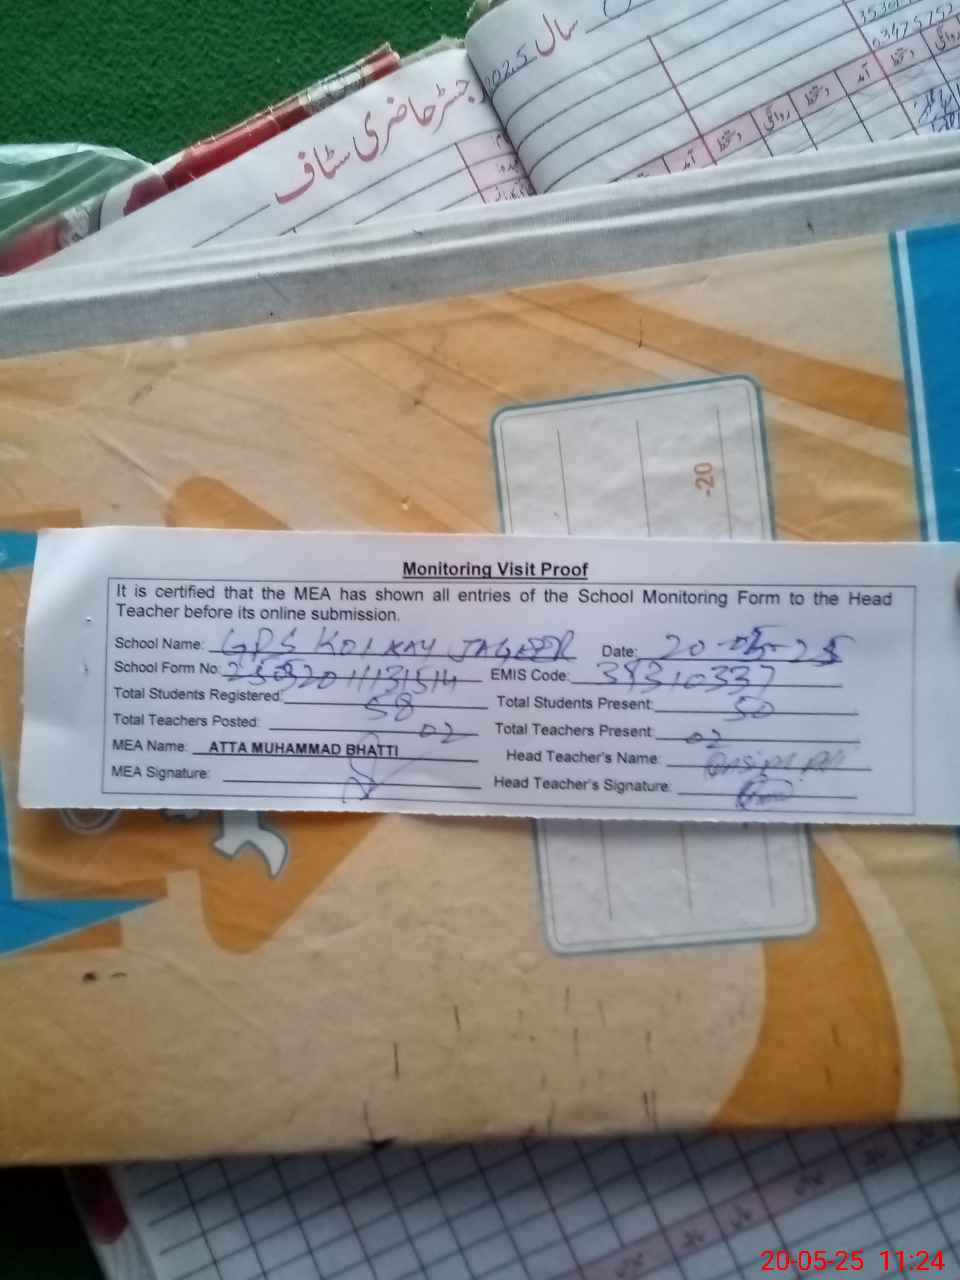 سال 2025
رجسٹر حاضری سٹاف
آمد دستخط روانگی دستخط آمد دستخط
-20
Monitoring Visit Proof
It is certified that the MEA has shown all entries of the School Monitoring Form to the Head
Teacher before its online submission.
School Name: GPS KOT KAY JAGEER Date: 20-05-25
School Form No: EMIS Code: 38310337
Total Students Registered: 58 Total Students Present: 50
Total Teachers Posted: 02 Total Teachers Present: 02
MEA Name: ATTA MUHAMMAD BHATTI Head Teacher's Name:
MEA Signature: Head Teacher's Signature:
20-05-25 11:24